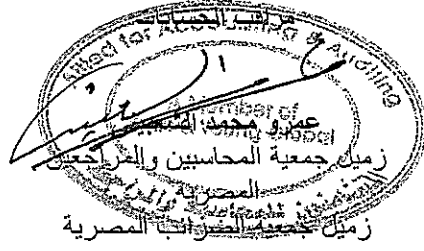 مراقب الحسابات
Allied for Accounting & Auditing
A member of
عمرو محمد
زميل جمعية المحاسبين والمراجعين
المصرية
زميل جمعية الضرائب المصرية